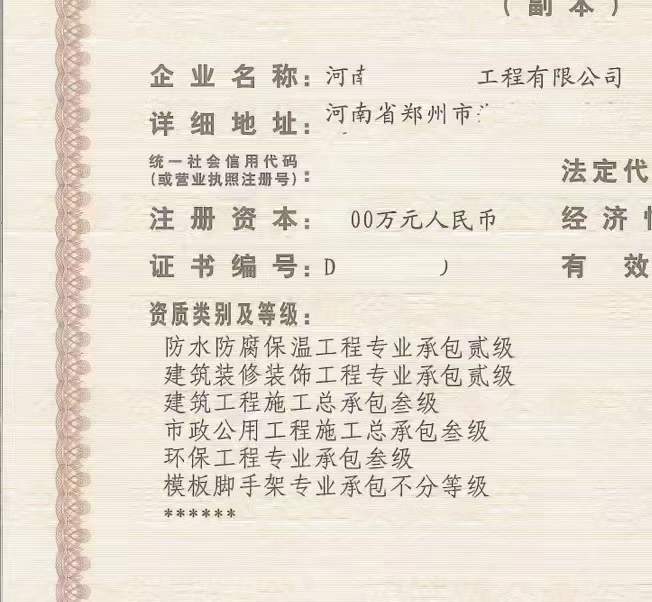 （副本）
企业名称：河南 工程有限公司
详细地址：河南省郑州市
统一社会信用代码
(或营业执照注册号)：
法定代
注册资本： 00万元人民币
经济性
证书编号：D
有效
资质类别及等级：
防水防腐保温工程专业承包贰级
建筑装修装饰工程专业承包贰级
建筑工程施工总承包叁级
市政公用工程施工总承包叁级
环保工程专业承包叁级
模板脚手架专业承包不分等级
******